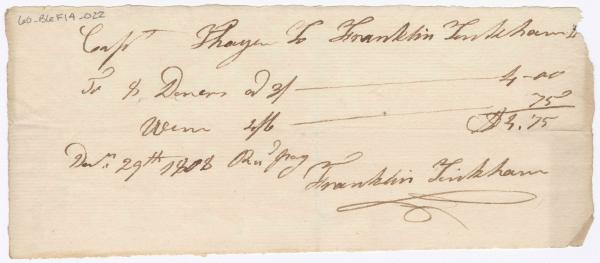 60-B6F14-022
Capt Thayer To Franklin Tinkham Dr
To 8 Diners at 3/ 4-00
Wine 4/6 75
$4.75
Decr. 29th 1808 Recd pay
Franklin Tinkham